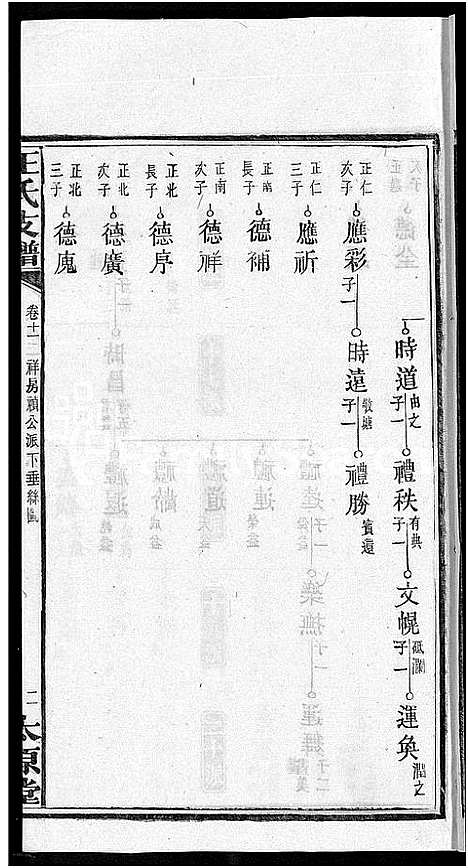 時道 由文 子一 禮秩 有典 子一 文幌 砥瀾 子一 運奐 潤之
正仁 次子 應彩 子一 時遠 敬塘 子一 禮勝 賓遠
正仁 三子 應祈
正南 長子 德補
正南 次子 德祥
正北 長子 德序
正北 次子 德廣
正北 三子 德廆
王氏支譜
卷十一 祥房頑公派下垂絲圖
二
太原堂